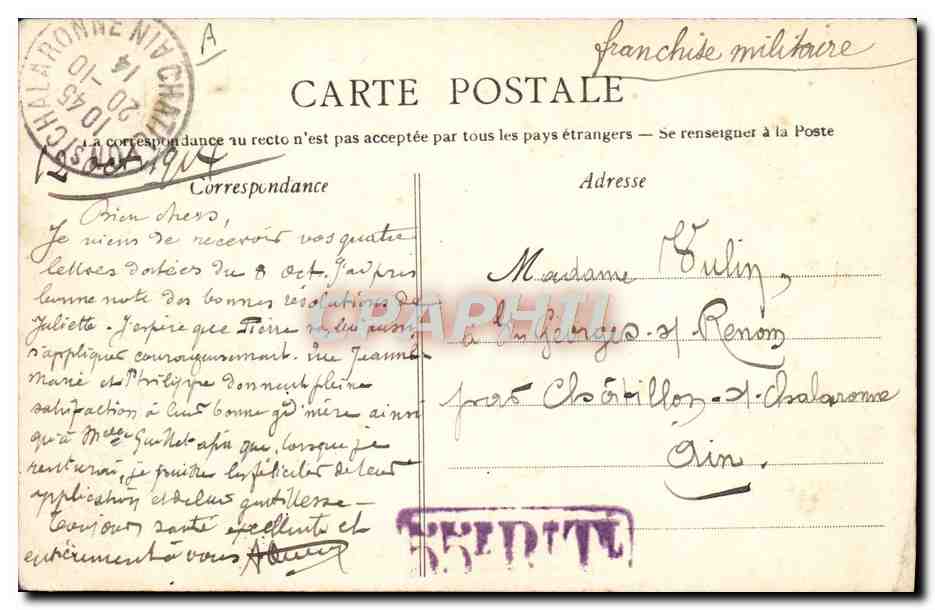 franchise militaire
A
CHATILLON S CHALARONNE AIN
10 45
20 -10
14
CARTE POSTALE
La correspondance au recto n'est pas acceptée par tous les pays étrangers — Se renseigner à la Poste
12 oct 1914
Correspondance
Bien chers,
Je viens de recevoir vos quatre
lettres datées du 8 oct. J'ai pris
bonne note des bonnes résolutions de
Juliette. J'espère que Pierre va lui aussi
s'appliquer courageusement. Que Jeanne
Marie et Philippe donnent pleine
satisfaction à leur bonne gd'mère ainsi
qu'à Melle Guillet afin que, lorsque je
rentrerai, je puisse les féliciter de leur
application et de leur gentillesse –
Toujours santé excellente et
entièrement à vous
Adresse
Madame Vulin,
à St Georges-s/-Renom
près Châtillon-s/-Chalaronne
Ain.
CPAPHIL